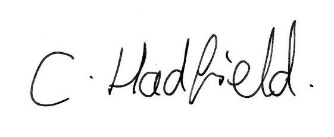 C. Hadfield.